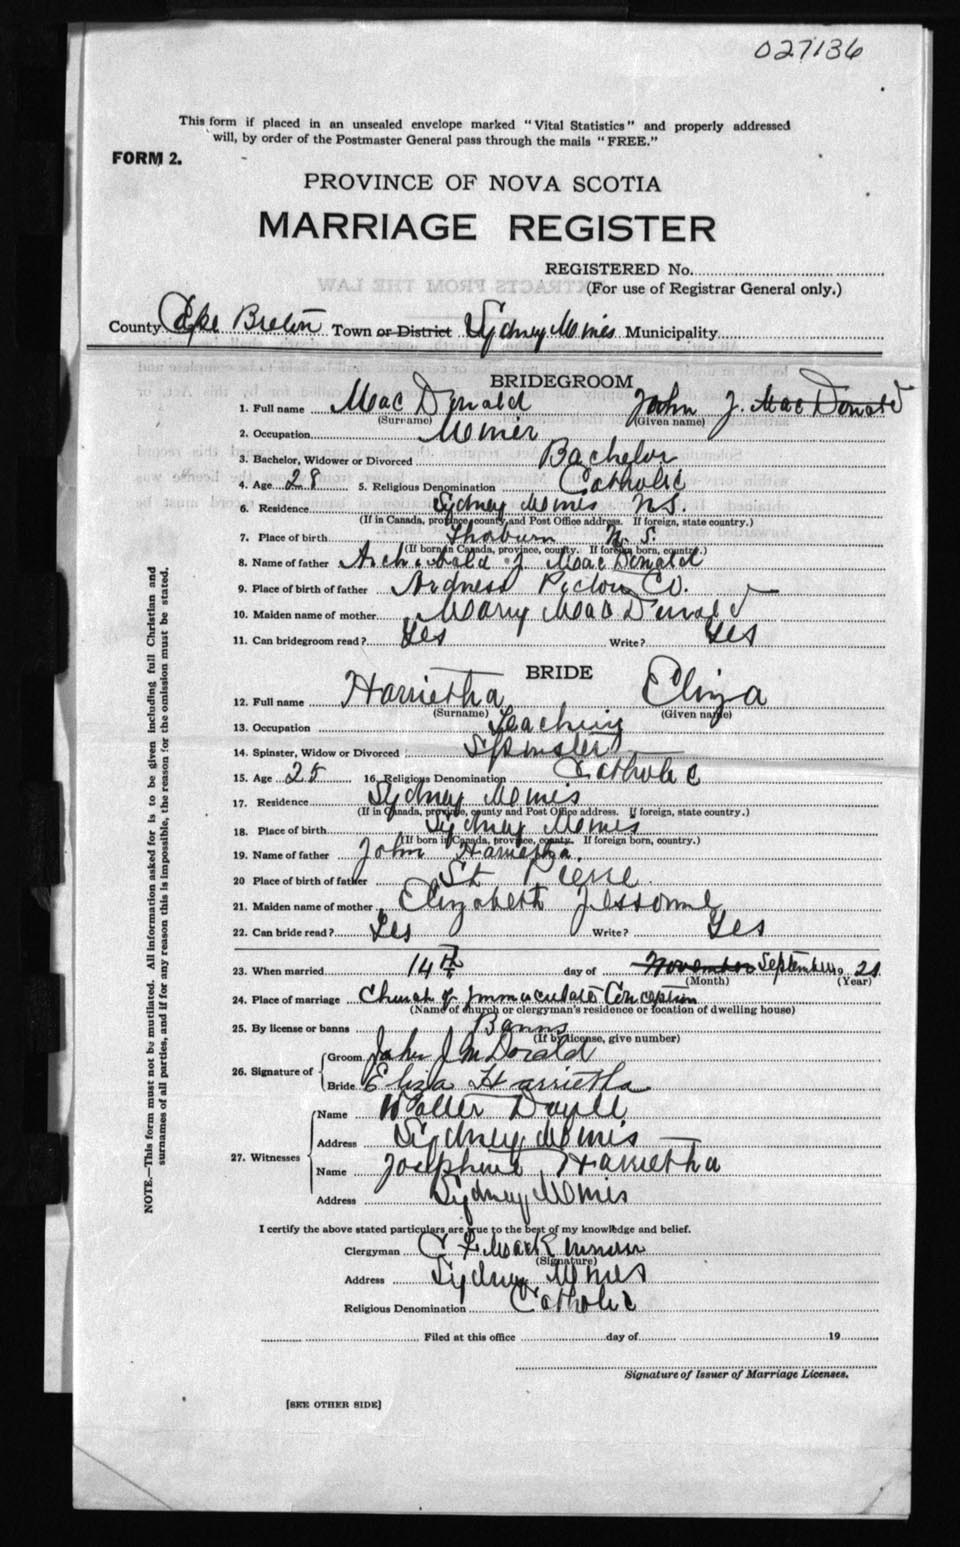 027136
This form if placed in an unsealed envelope marked "Vital Statistics" and properly addressed
will, by order of the Postmaster General pass through the mails "FREE."
FORM 2.
PROVINCE OF NOVA SCOTIA
MARRIAGE REGISTER
REGISTERED No.
(For use of Registrar General only.)
County Cape Breton Town or District Sydney Mines Municipality
BRIDEGROOM
1. Full name MacDonald John J. MacDonald
(Surname) (Given name)
2. Occupation Miner
3. Bachelor, Widower or Divorced Bachelor
4. Age 28 5. Religious Denomination Catholic
6. Residence Sydney Mines N.S.
(If in Canada, province, county and Post Office address. If foreign, state country.)
7. Place of birth Thorburn N.S.
(If born in Canada, province, county. If foreign born, country.)
8. Name of father Archibald J MacDonald
9. Place of birth of father Ardness Pictou Co.
10. Maiden name of mother Mary MacDonald
11. Can bridegroom read? Yes Write? Yes
BRIDE
12. Full name Harrietha Eliza
(Surname) (Given name)
13. Occupation Teaching
14. Spinster, Widow or Divorced Spinster
15. Age 25 16. Religious Denomination Catholic
17. Residence Sydney Mines
(If in Canada, province, county and Post Office address. If foreign, state country.)
18. Place of birth Sydney Mines
(If born in Canada, province, county. If foreign born, country.)
19. Name of father John Harrietha.
20 Place of birth of father St Pierre
21. Maiden name of mother Elizabeth Jessome
22. Can bride read? Yes Write? Yes
23. When married 14th day of November September 19 21
(Month) (Year)
24. Place of marriage Church of Immaculate Conception
(Name of church or clergyman's residence or location of dwelling house)
25. By license or banns Banns
(If by license, give number)
26. Signature of
Groom John J McDonald
Bride Eliza Harrietha
27. Witnesses
Name Walter
Address Sydney Mines
Name Josephine Harrietha
Address Sydney Mines
I certify the above stated particulars are true to the best of my knowledge and belief.
Clergyman C F MacKinnon
(Signature)
Address Sydney Mines
Religious Denomination Catholic
Filed at this office day of 19
Signature of Issuer of Marriage Licenses.
[SEE OTHER SIDE]
NOTE.—This form must not be mutilated. All information asked for is to be given including full Christian and
surnames of all parties, and if for any reason this is impossible, the reason for the omission must be stated.